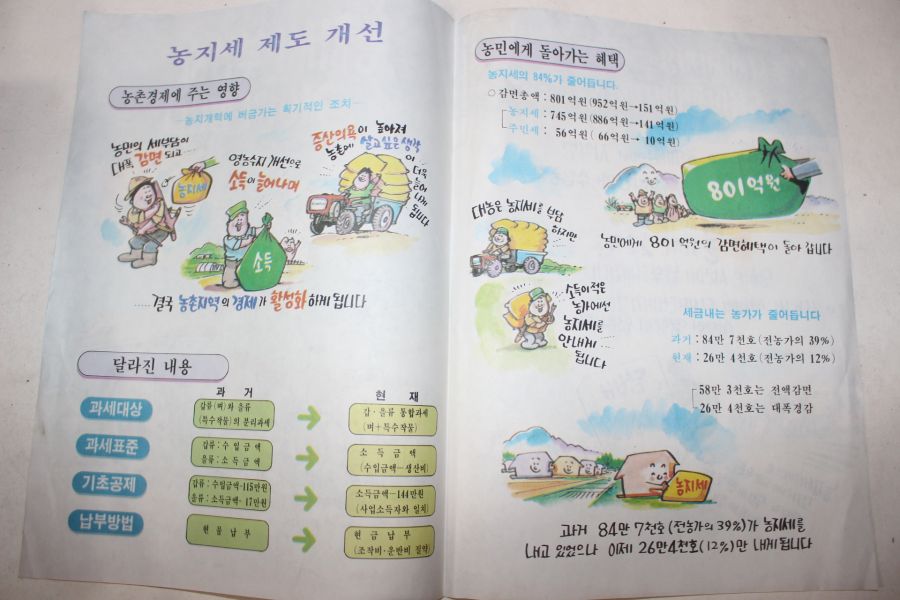 농지세 제도 개선
농촌경제에 주는 영향
농지개혁에 버금가는 획기적인 조치
농민의 세부담이
대폭 감면 되고
농지세
영농수지 개선으로
소득이 늘어나며
소득
증산의욕이 높아져
농촌에 살고 싶은 생각
이
더욱
늘어
나게
됩니다
.....결국 농촌지역의 경제가 활성화 하게 됩니다
달라진 내용
과 거
현 재
과세대상
갑류(벼)와 을류
(특수작물)의 분리과세
갑·을류 통합과세
(벼+특수작물)
과세표준
갑류:수입금액
을류:소득금액
소 득 금 액
(수입금액-생산비)
기초공제
갑류:수입금액-115만원
을류:소득금액-17만원
소득금액-144만원
(사업소득자와 일치)
납부방법
현 물 납 부
현 금 납 부
(조작비·운반비 절약)
농민에게 돌아가는 혜택
농지세의 84%가 줄어듭니다.
○감면총액:801억원(952억원→151억원)
농지세:745억원(886억원→141억원)
주민세: 56억원( 66억원→ 10억원)
801억원
농민에게 801억원의 감면혜택이 돌아 갑니다
대농은 농지세를 부담
하지만
소득이 적은
농가에선
농지세를
안내게
됩니다
세금내는 농가가 줄어듭니다
과거:84만 7천호(전농가의 39%)
현재:26만 4천호(전농가의 12%)
58만 3천호는 전액감면
26만 4천호는 대폭경감
농지세
과거 84만 7천호(전농가의 39%)가 농지세를
내고 있었으나 이제 26만4천호(12%)만 내게됩니다